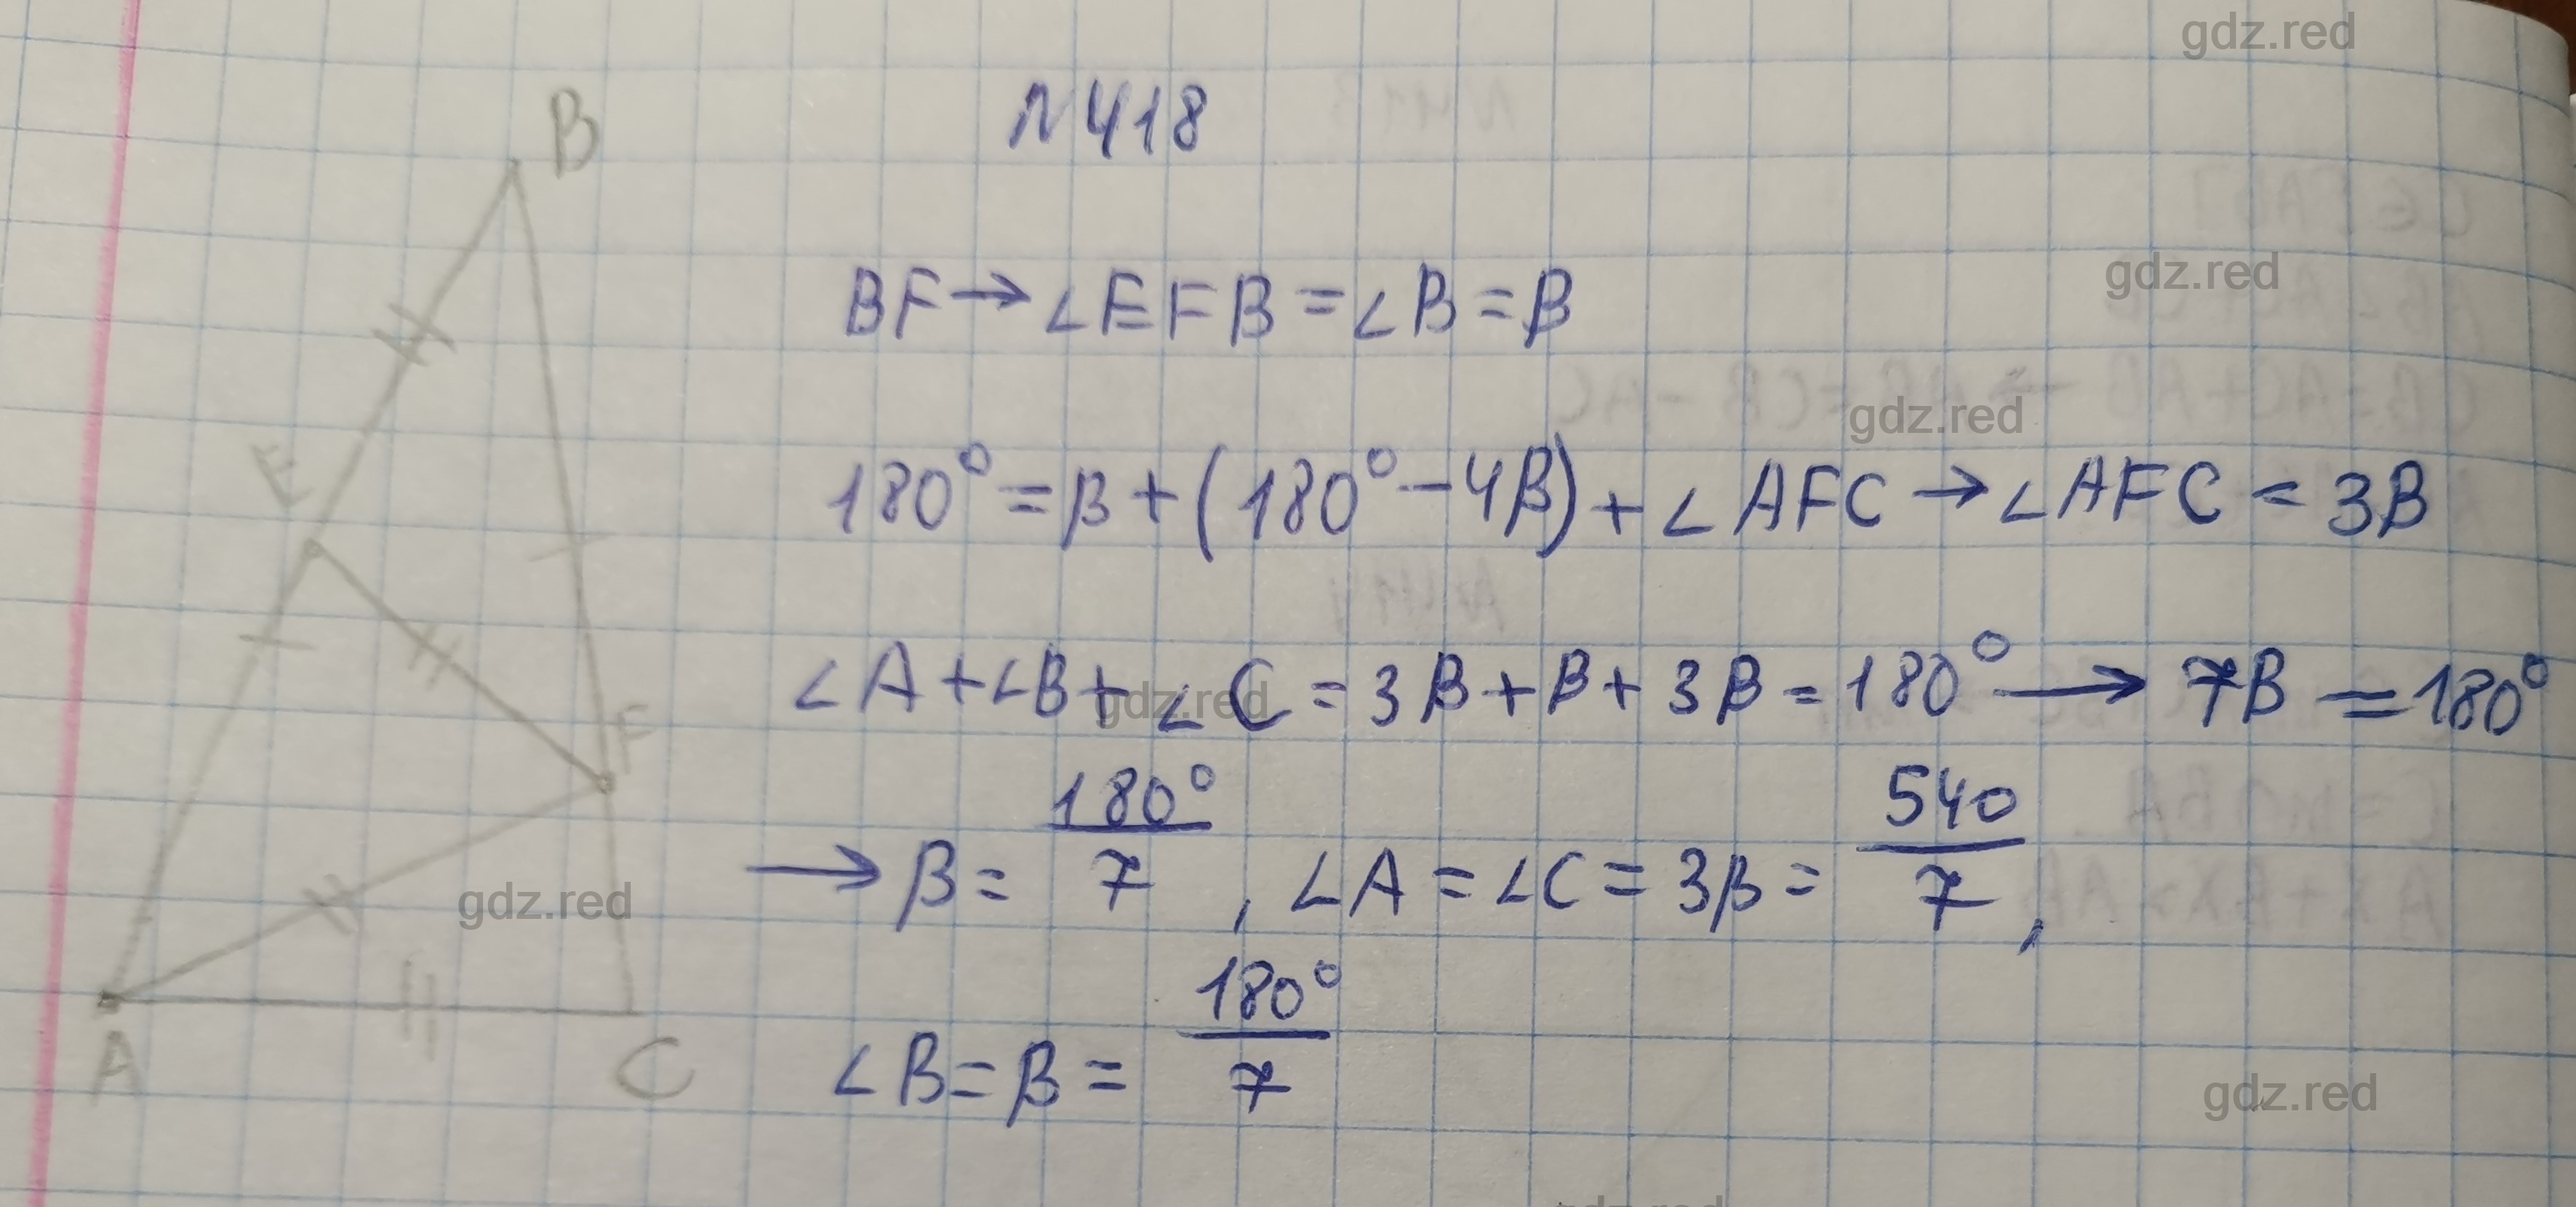 gdz.red
N418
B
BF → ∠EFB = ∠B = β
gdz.red
gdz.red
E
180° = β + (180° - 4β) + ∠AFC → ∠AFC = 3β
∠A + ∠B + ∠C = 3β + β + 3β = 180° → 7β = 180°
gdz.red
F
→ β = 180°/7, ∠A = ∠C = 3β = 540/7,
gdz.red
∠B = β = 180°/7
A C
gdz.red
gdz.red